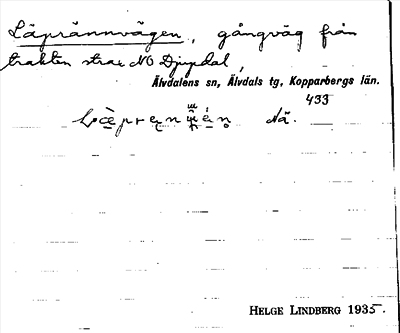 Läprännvägen, gångväg från
trakten strax NO Djupdal,
Älvdalens sn, Älvdals tg, Kopparbergs län.
433
Nä.
HELGE LINDBERG 1935.